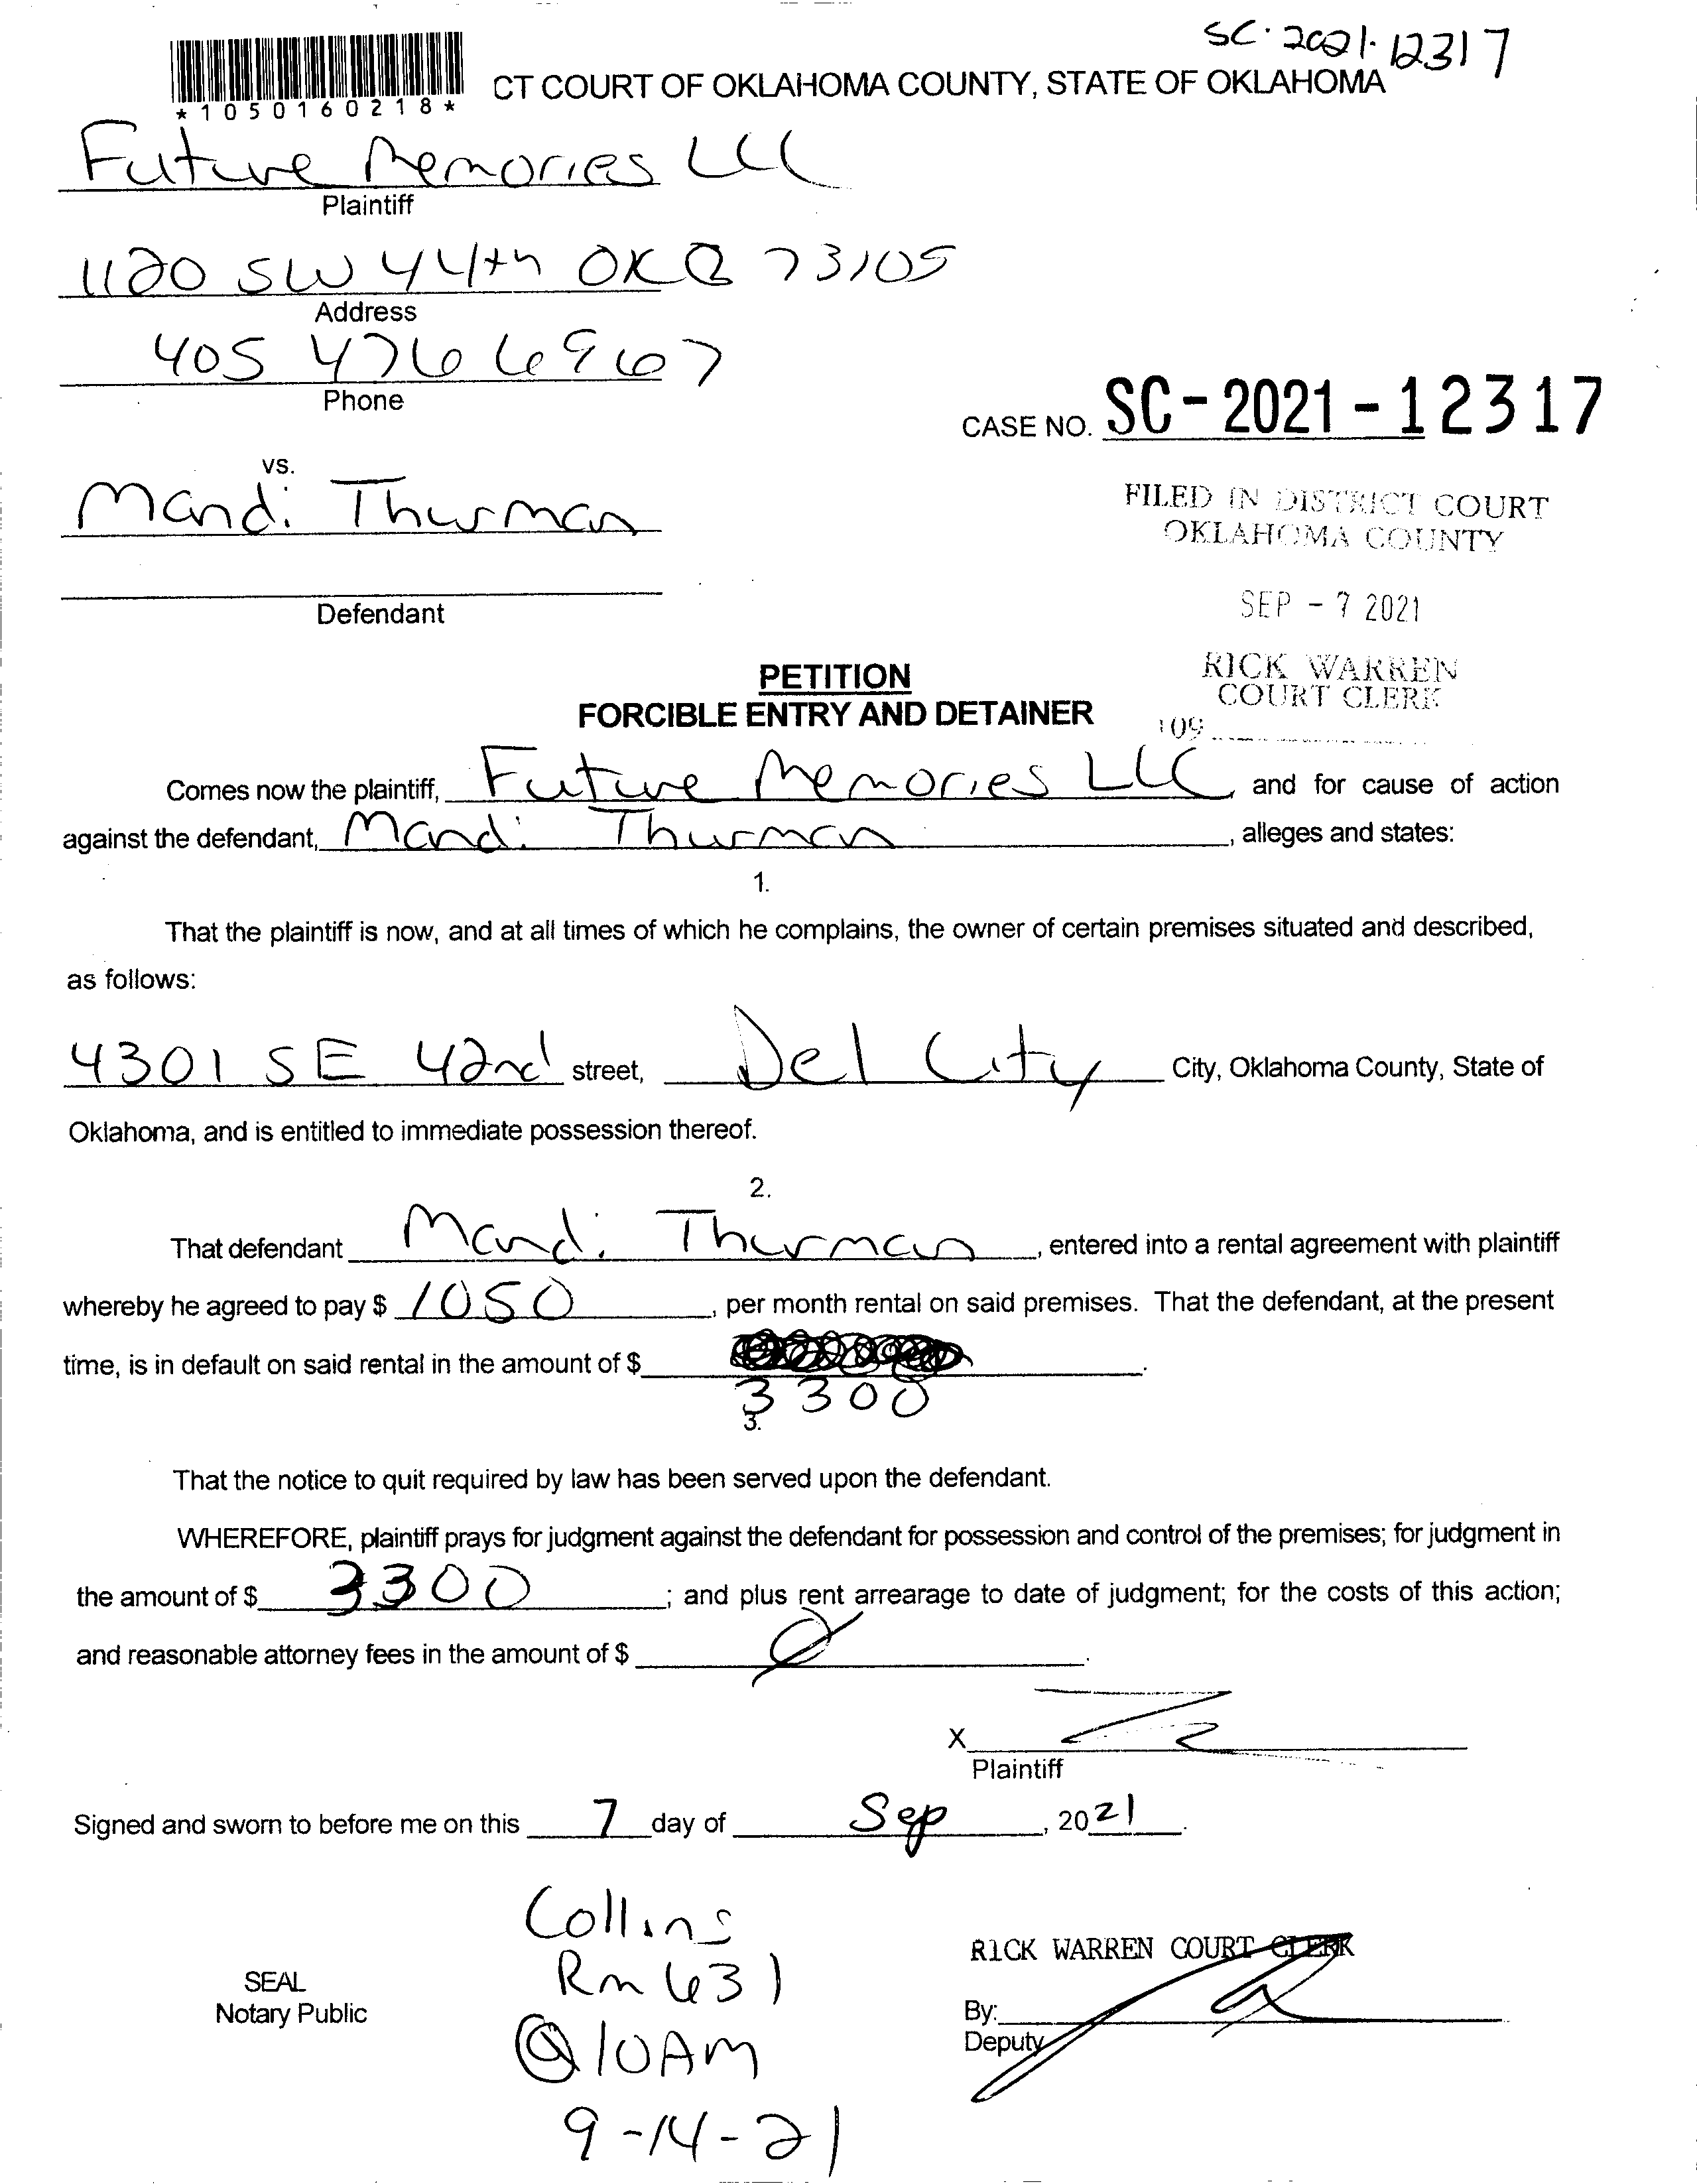 SC-2021-12317
CT COURT OF OKLAHOMA COUNTY, STATE OF OKLAHOMA
*1050160218*
Future Memories LLC
Plaintiff
1120 SW 44th OKC 73105
Address
405 476 6967
Phone
CASE NO. SC-2021-12317
vs.
Mandi Thurman
Defendant
FILED IN DISTRICT COURT
OKLAHOMA COUNTY
SEP - 7 2021
RICK WARREN
COURT CLERK
109
PETITION
FORCIBLE ENTRY AND DETAINER
Comes now the plaintiff, Future Memories LLC and for cause of action
against the defendant, Mandi Thurman, alleges and states:
1.
That the plaintiff is now, and at all times of which he complains, the owner of certain premises situated and described,
as follows:
4301 SE 42nd street, Del City City, Oklahoma County, State of
Oklahoma, and is entitled to immediate possession thereof.
2.
That defendant Mandi Thurman, entered into a rental agreement with plaintiff
whereby he agreed to pay $ 1050, per month rental on said premises. That the defendant, at the present
time, is in default on said rental in the amount of $ .
3300
3.
That the notice to quit required by law has been served upon the defendant.
WHEREFORE, plaintiff prays for judgment against the defendant for possession and control of the premises; for judgment in
the amount of $ 3300 ; and plus rent arrearage to date of judgment; for the costs of this action;
and reasonable attorney fees in the amount of $ Ø.
X
Plaintiff
Signed and sworn to before me on this 7 day of Sep, 2021.
Collins
Rm 631
@ 10AM
9-14-21
SEAL
Notary Public
RICK WARREN COURT CLERK
By:
Deputy